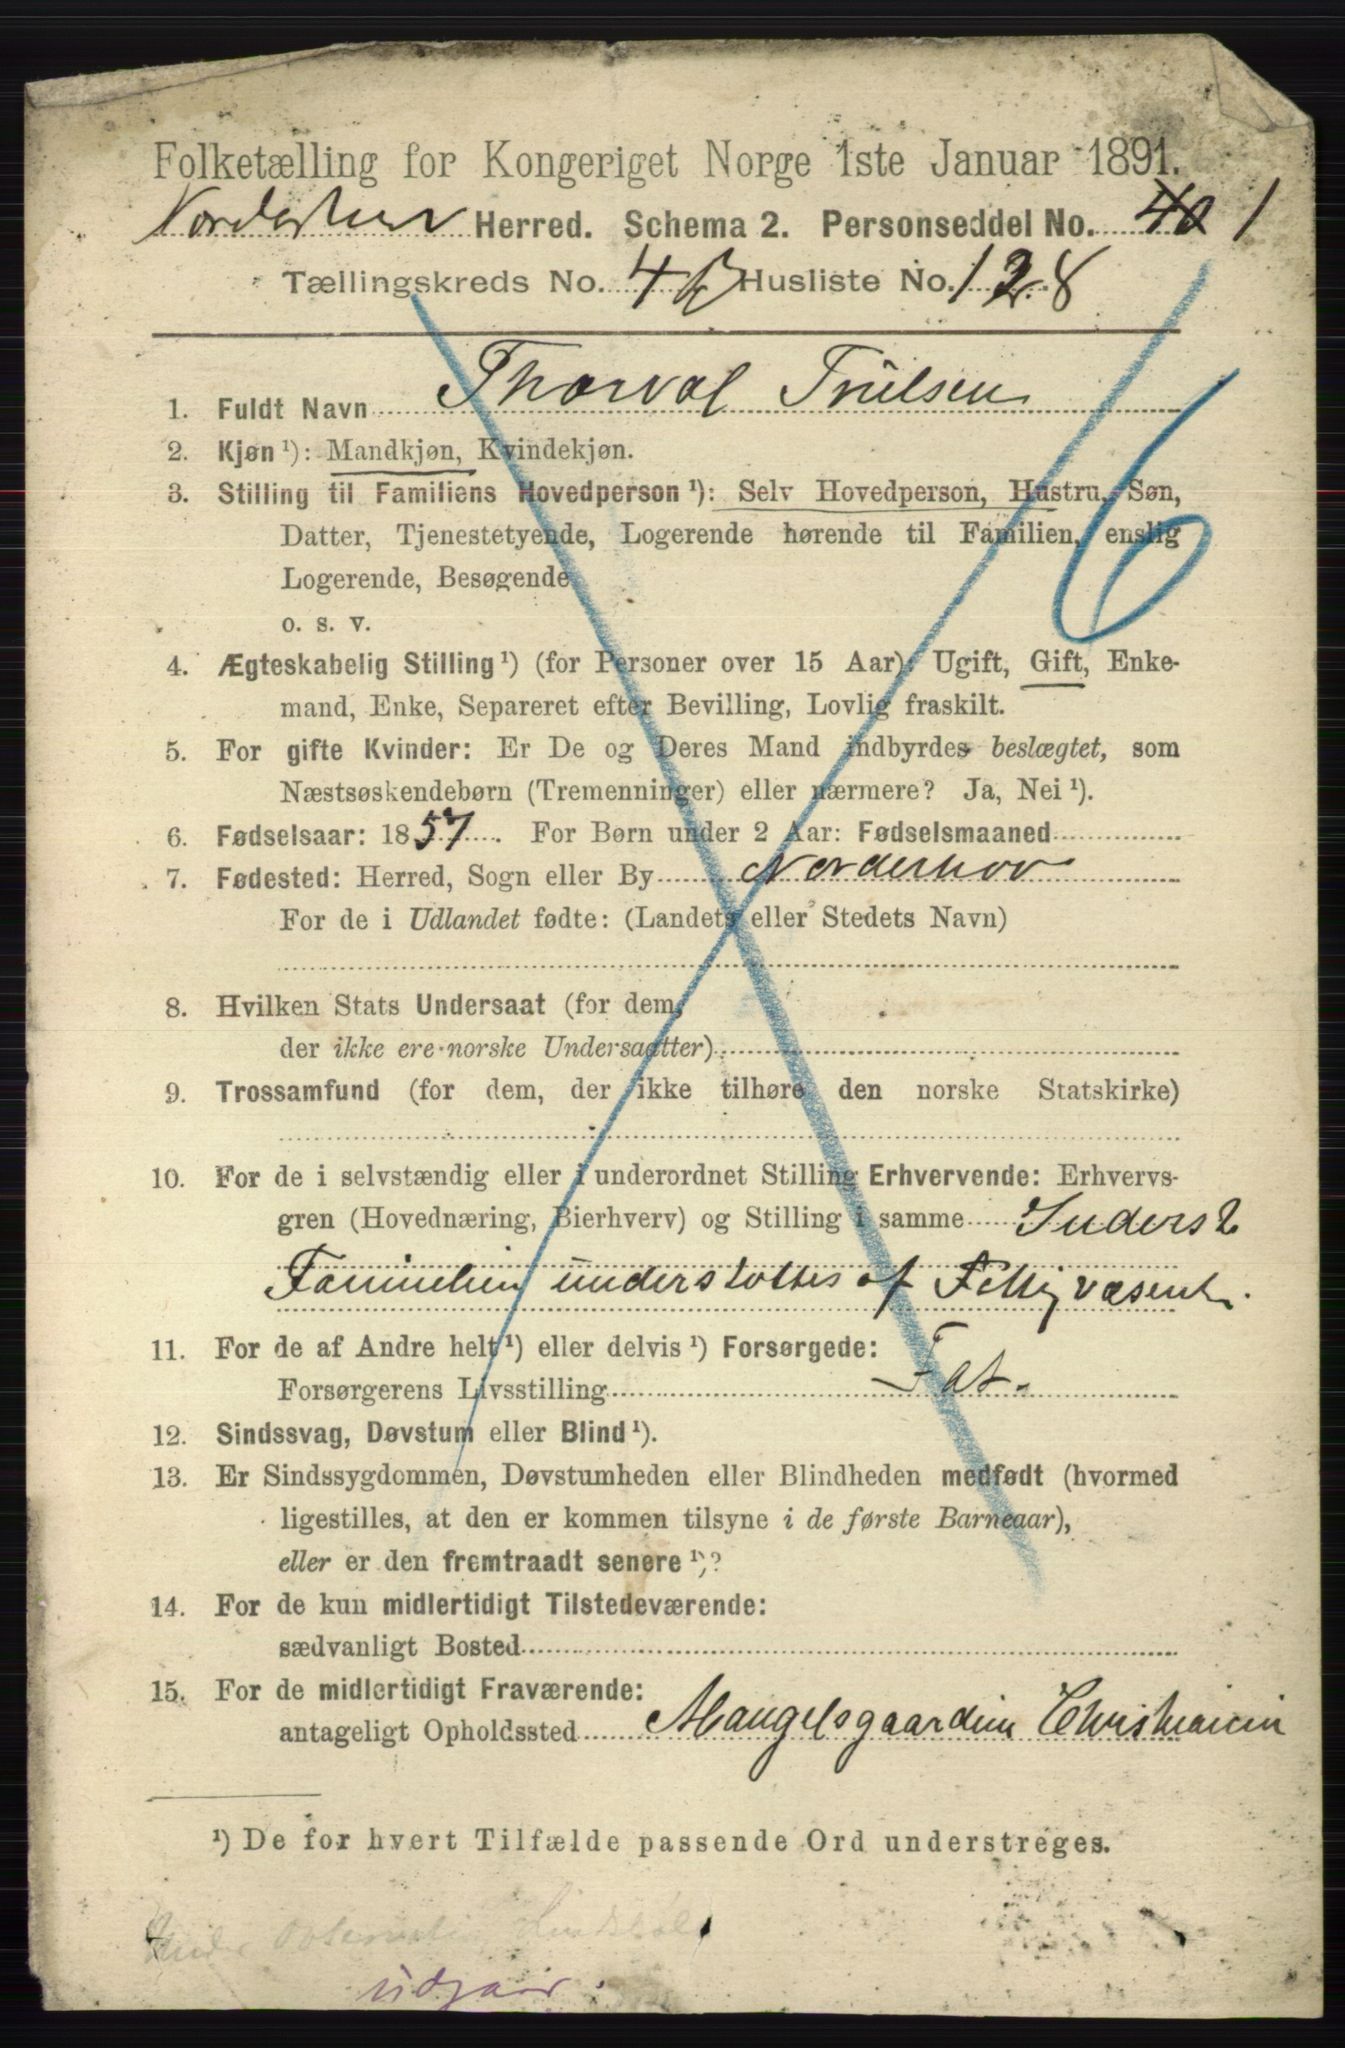 Folketælling for Kongeriget Norge 1ste Januar 1891.
Norderhov Herred. Schema 2. Personseddel No. 1
Tællingskreds No. 4 B Husliste No. 128
1. Fuldt Navn Thorval Trulsen
2. Kjøn ¹): Mandkjøn, Kvindekjøn.
3. Stilling til Familiens Hovedperson ¹): Selv Hovedperson, Hustru, Søn,
Datter, Tjenestetyende, Logerende hørende til Familien, enslig
Logerende, Besøgende
o. s. v.
6
4. Ægteskabelig Stilling ¹) (for Personer over 15 Aar): Ugift, Gift, Enke-
mand, Enke, Separeret efter Bevilling, Lovlig fraskilt.
5. For gifte Kvinder: Er De og Deres Mand indbyrdes beslægtet, som
Næstsøskendebørn (Tremenninger) eller nærmere? Ja, Nei ¹).
6. Fødselsaar: 1857. For Børn under 2 Aar: Fødselsmaaned
7. Fødested: Herred, Sogn eller By Norderhov
For de i Udlandet fødte: (Landets eller Stedets Navn)
8. Hvilken Stats Undersaat (for dem,
der ikke ere norske Undersaatter)
9. Trossamfund (for dem, der ikke tilhøre den norske Statskirke)
10. For de i selvstændig eller i underordnet Stilling Erhvervende: Erhvervs-
gren (Hovednæring, Bierhverv) og Stilling i samme Inderst
Familien understøttes af Fattigvæsent.
11. For de af Andre helt ¹) eller delvis ¹) Forsørgede:
Forsørgerens Livsstilling Fat.
12. Sindssvag, Døvstum eller Blind ¹).
13. Er Sindssygdommen, Døvstumheden eller Blindheden medfødt (hvormed
ligestilles, at den er kommen tilsyne i de første Barneaar),
eller er den fremtraadt senere ¹)?
14. For de kun midlertidigt Tilstedeværende:
sædvanligt Bosted
15. For de midlertidigt Fraværende:
antageligt Opholdssted Mangelsgaarden Christiania
¹) De for hvert Tilfælde passende Ord understreges.
Under Observation
udgaar.